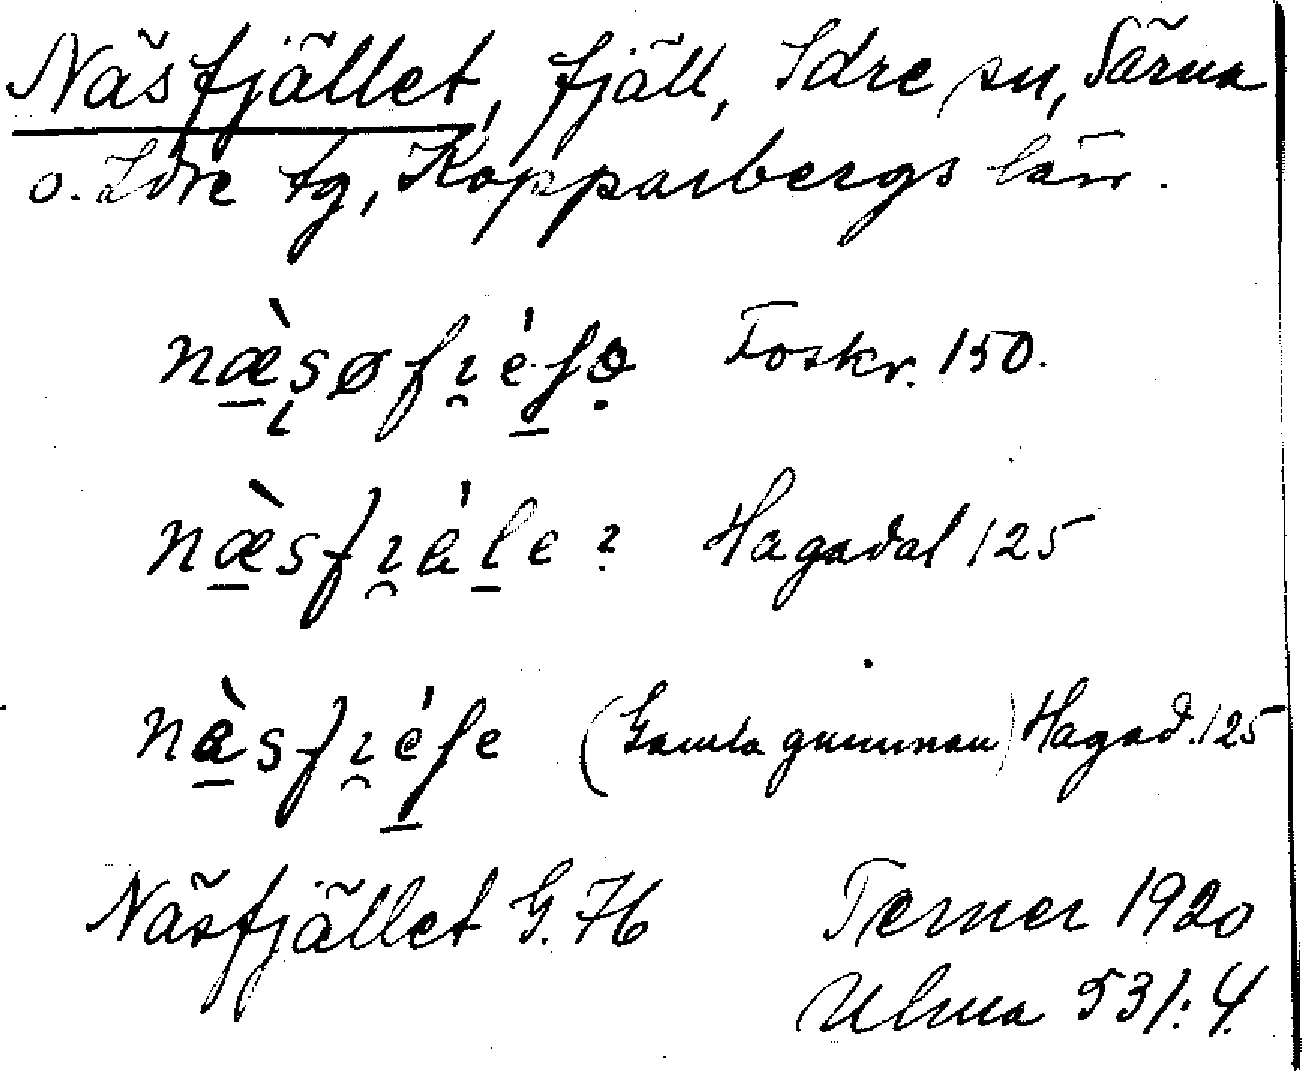 Näsfjället, fjäll, Idre sn, Särna
o. Idre tg, Kopparbergs län.
Foskr. 150.
Hagadal 125
(Gamla gumman) Hagad. 125
Näsfjället G. 76 Terner 1920
Ulma 531:4